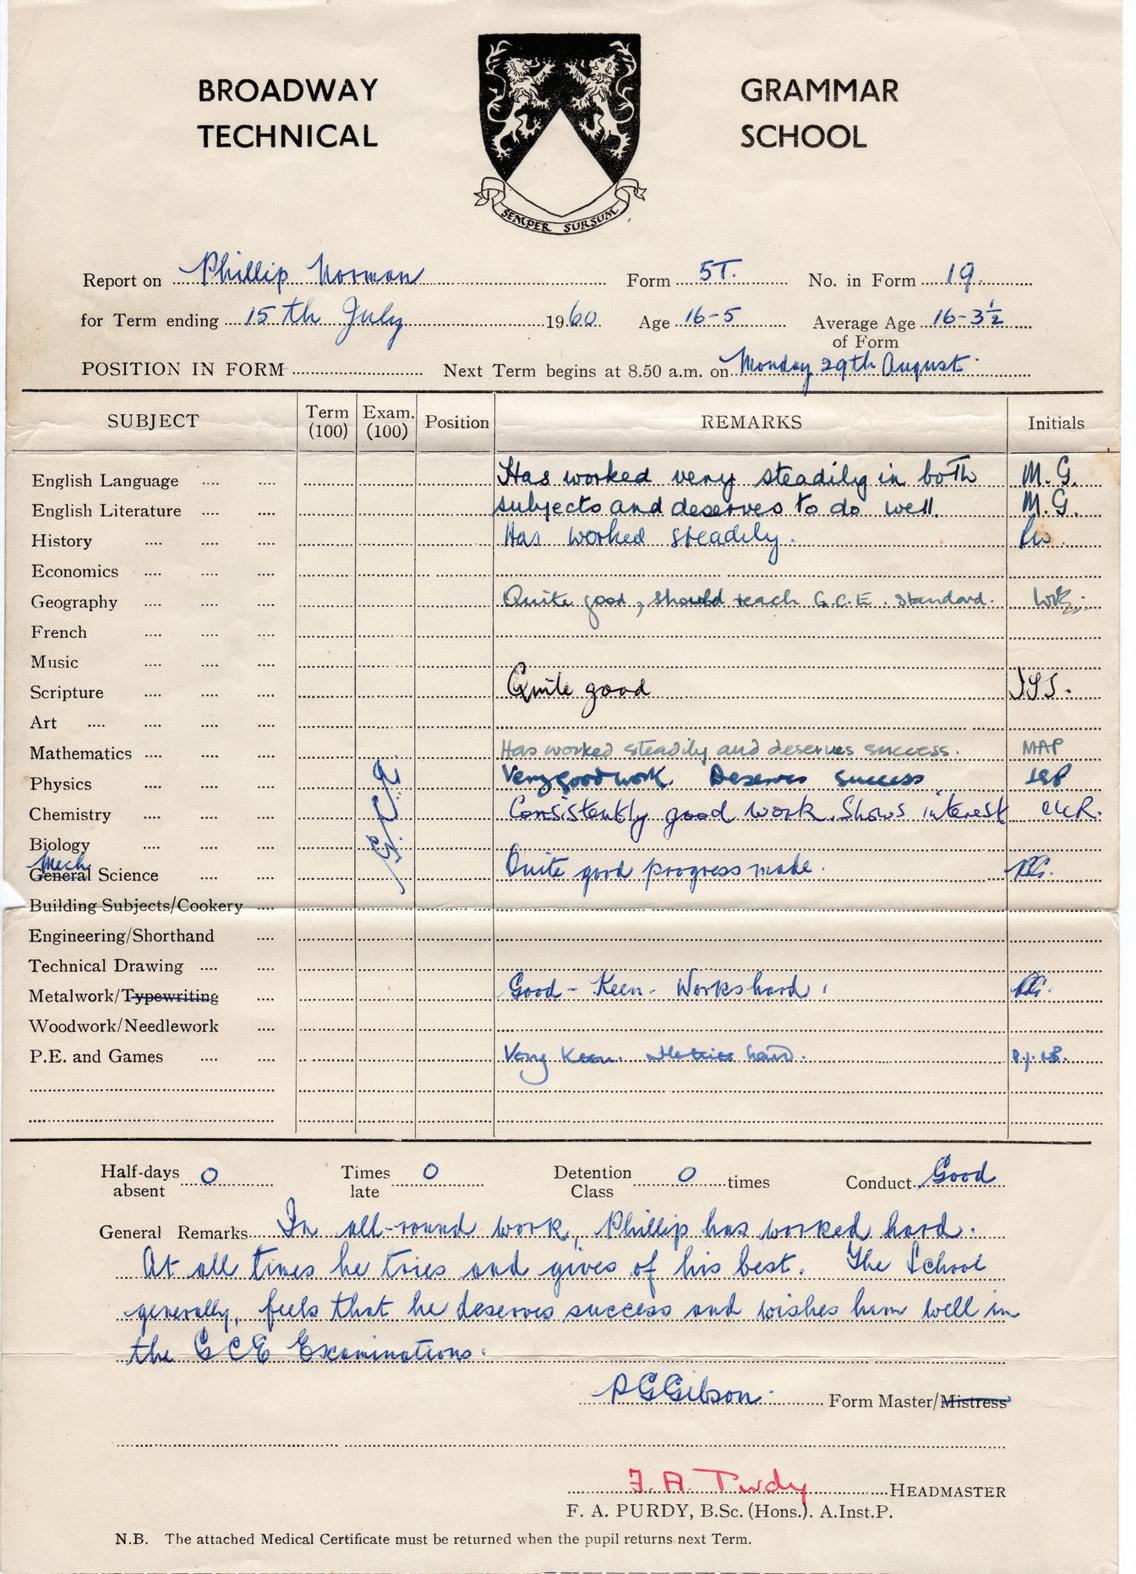 BROADWAY GRAMMAR
TECHNICAL SCHOOL
SEMPER SURSUM
Report on Phillip Norman Form 5T. No. in Form 19.
for Term ending 15th July 1960 Age 16-5 Average Age of Form 16-3½
POSITION IN FORM Next Term begins at 8.50 a.m. on Monday 29th August.
SUBJECT Term (100) Exam. (100) Position REMARKS Initials
English Language Has worked very steadily in both M.G.
English Literature subjects and deserves to do well. M.G.
History Has worked steadily.
Economics
Geography Quite good, should reach G.C.E. standard.
French
Music
Scripture Quite good
Art
Mathematics Has worked steadily and deserves success. MAP
Physics Very good work. Deserves success
Chemistry Consistently good work. Shows interest
G.C.E.
Biology
Mech
General Science Quite good progress made.
Building Subjects/Cookery
Engineering/Shorthand
Technical Drawing
Metalwork/Typewriting Good - Keen - Works hard.
Woodwork/Needlework
P.E. and Games Very Keen. hard.
Half-days absent 0 Times late 0 Detention Class 0 times Conduct Good
General Remarks In all-round work, Phillip has worked hard.
At all times he tries and gives of his best. The School
generally, feels that he deserves success and wishes him well in
the GCE Examinations.
P G Gibson. Form Master/Mistress
F. A. Purdy HEADMASTER
F. A. PURDY, B.Sc. (Hons.). A.Inst.P.
N.B. The attached Medical Certificate must be returned when the pupil returns next Term.